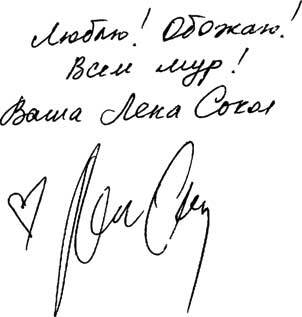 Люблю! Обожаю!
Всем мур!
Ваша Лена Сокол